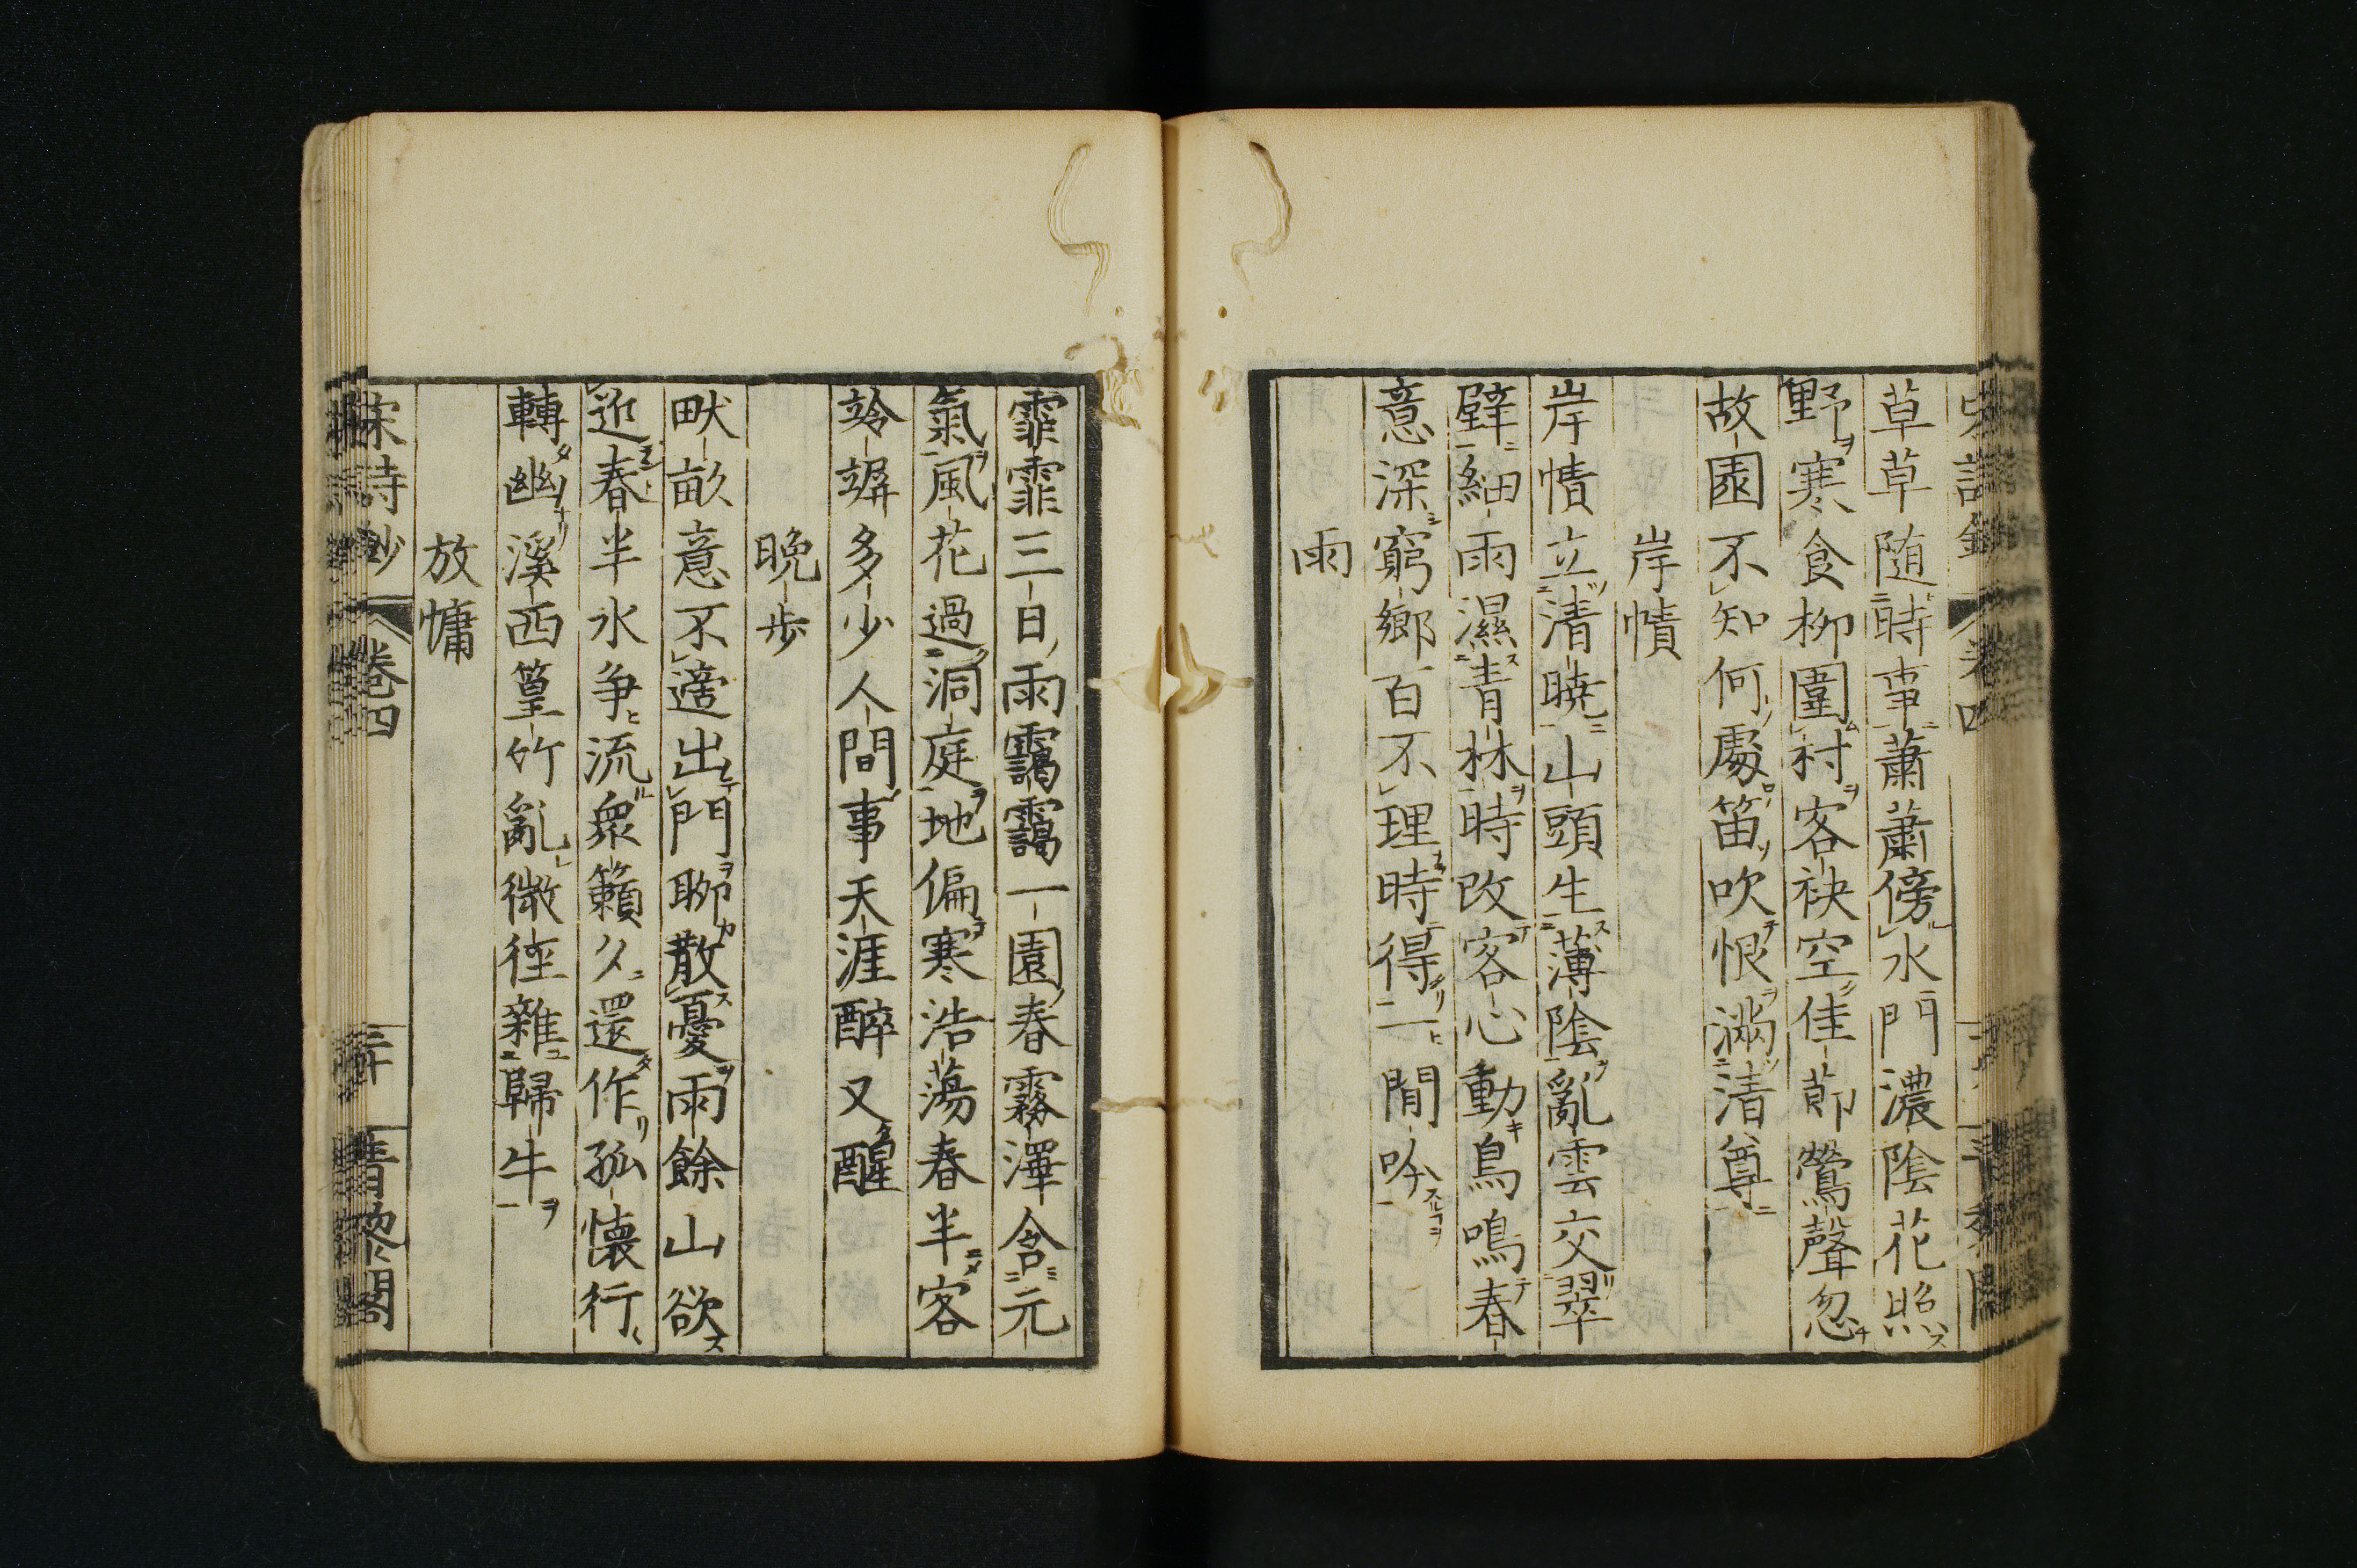 草草随時事蕭蕭傍水門濃陰花照
野寒食柳圍村客袂空佳節鶯聲忽
故園不知何處笛吹恨滿清尊
岸幘
岸幘立清曉山頭生薄陰亂雲交翠
壁細雨濕青林時改客心動鳥鳴春
意深窮鄉百不理時得一閒吟
雨
霏霏三日雨靄靄一園春霧澤含元
氣風花過洞庭地偏寒浩蕩春半客
竛竮多少人間事天涯醉又醒
晚步
畎畝意不適出門聊散憂雨餘山欲
近春半水爭流衆籟夕還作孤懷行
轉幽溪西篁竹亂微徑雜歸牛
放慵
宋詩鈔 卷四